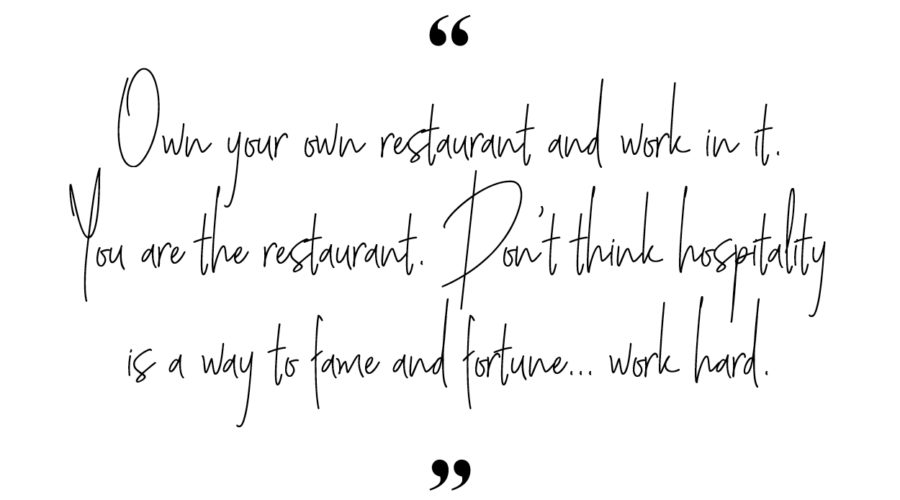 “
Own your own restaurant and work in it.
You are the restaurant. Don't think hospitality
is a way to fame and fortune... work hard.
”